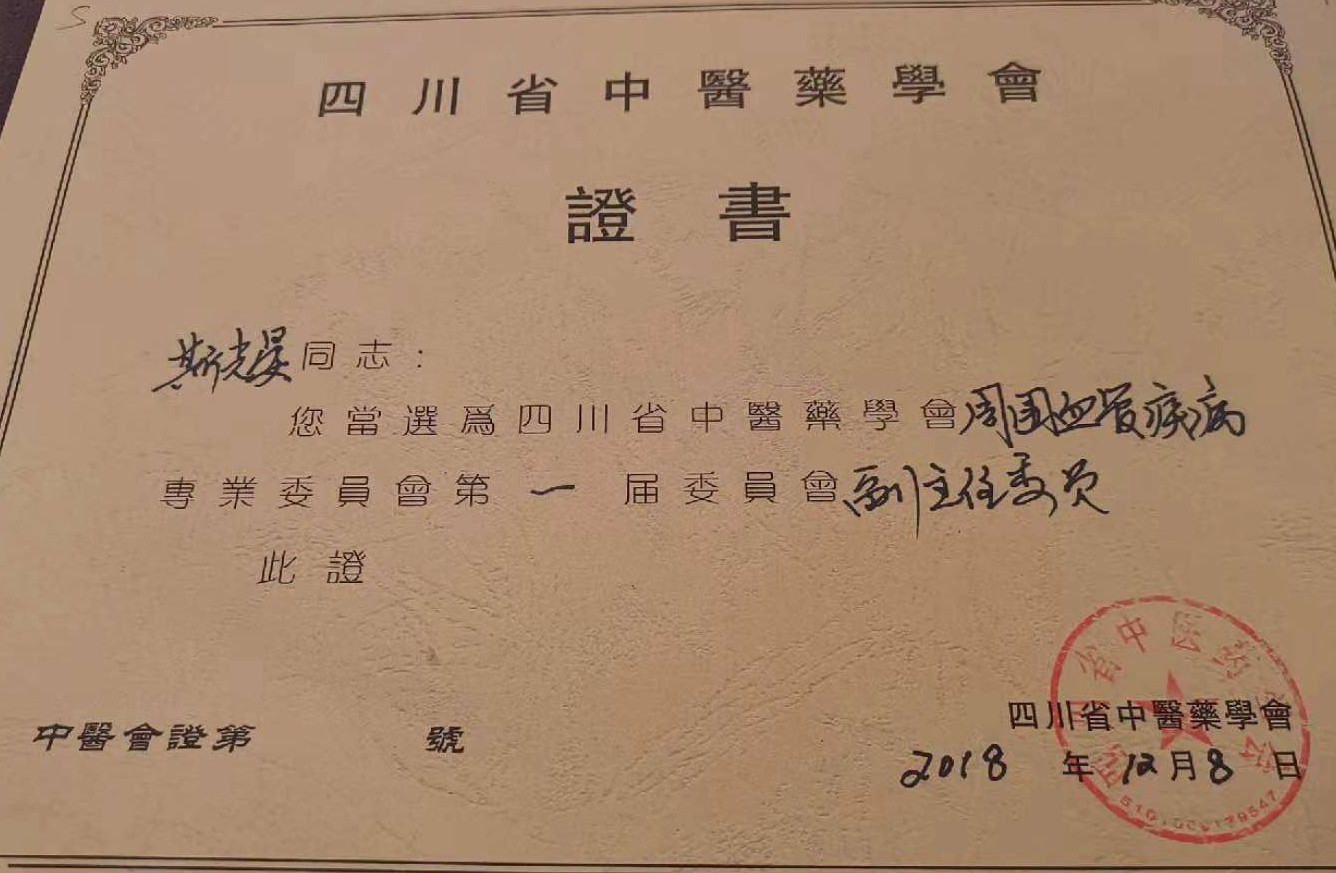 四川省中醫藥學會
證書
斯光晏同志：
您當選爲四川省中醫藥學會周围血管疾病
專業委員會第一届委員會副主任委员
此證
中醫會證第 號
四川省中醫藥學會
2018年12月8日